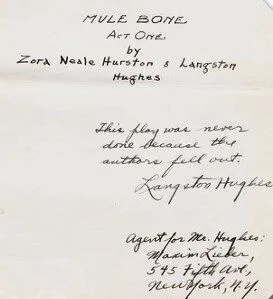 MULE BONE
ACT ONE
by
Zora Neale Hurston & Langston
Hughes
This play was never
done because the
authors fell out.
Langston Hughes
Agent for Mr. Hughes:
Maxim Lieber,
545 Fifth Ave,
New York, N.Y.